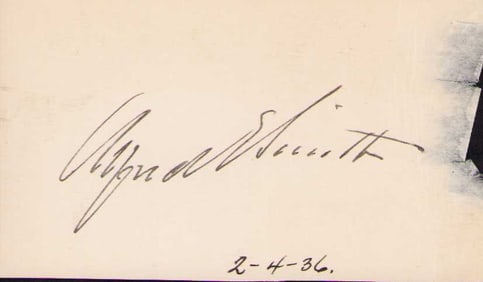 Alfred E Smith
2-4-36.